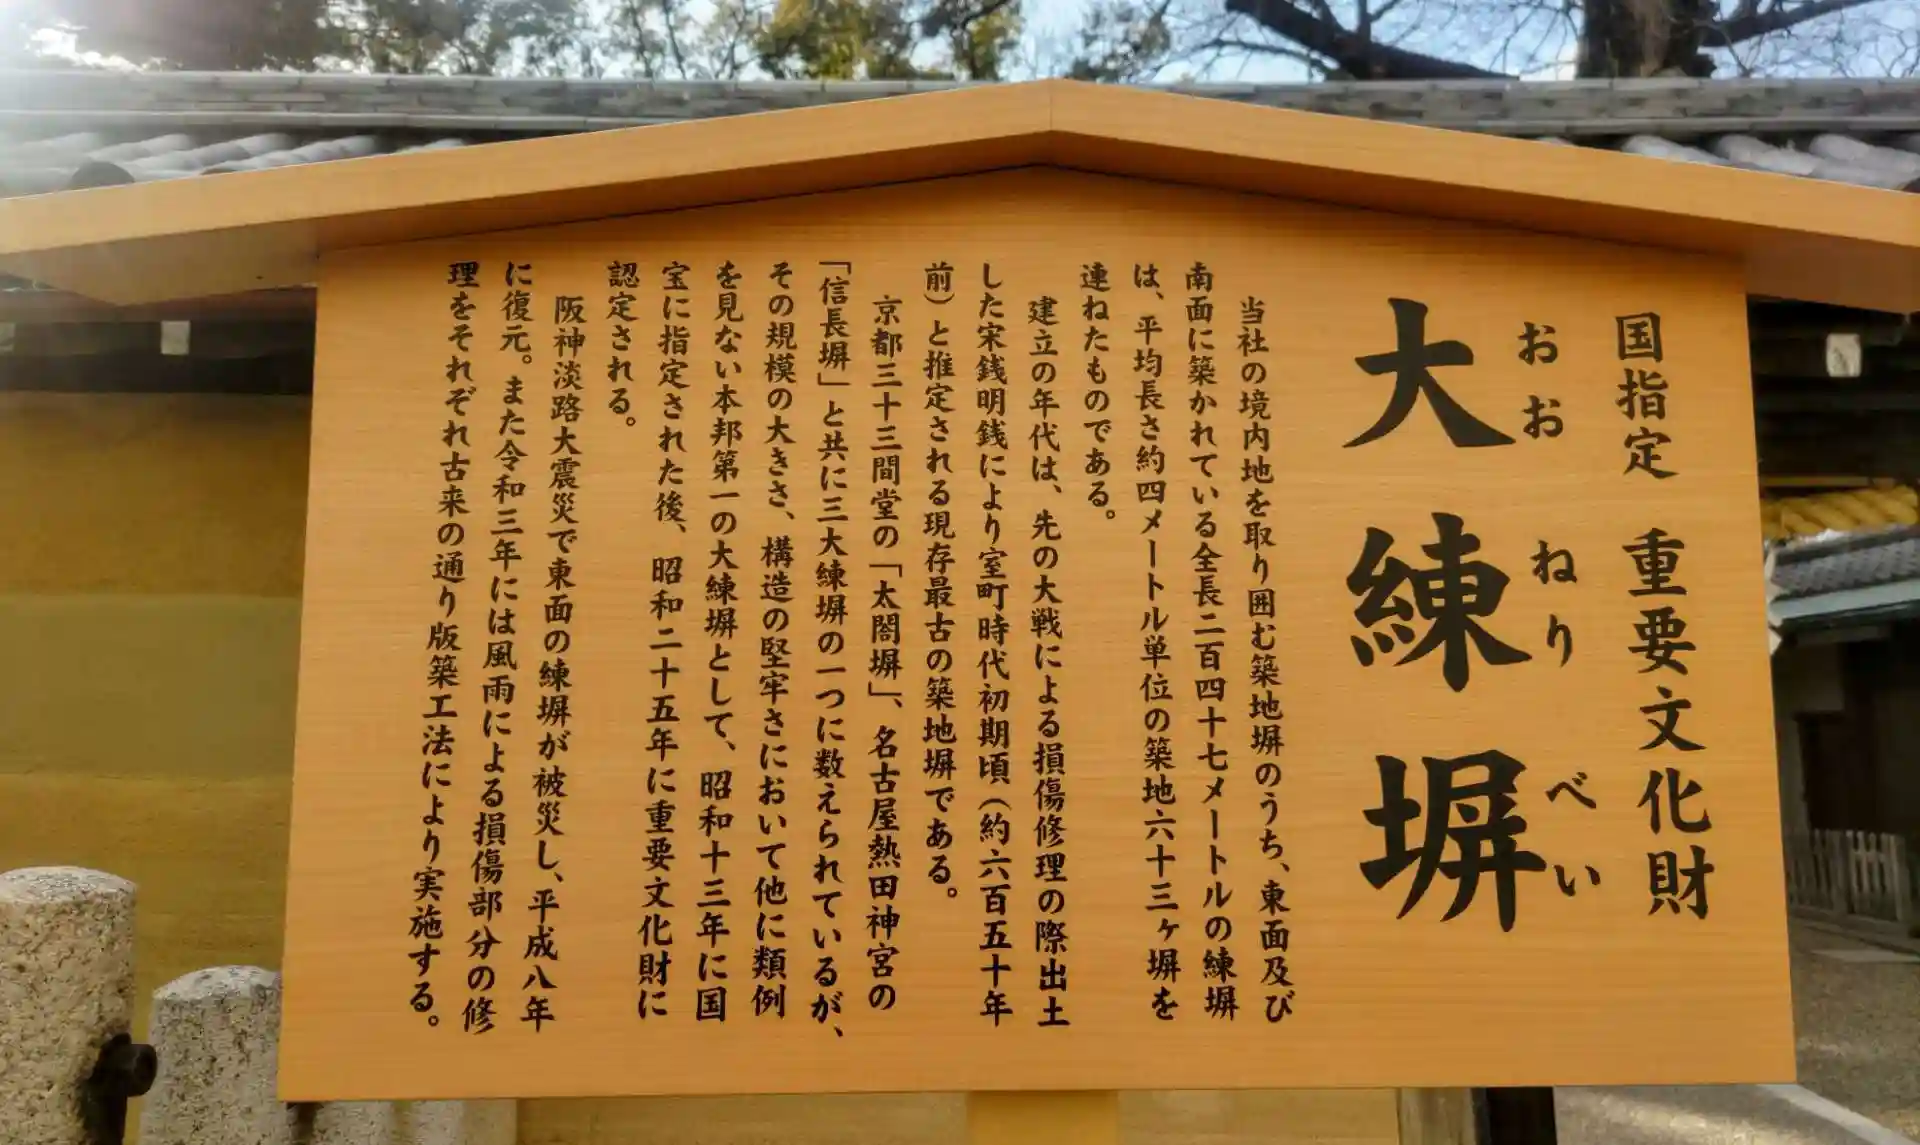 国指定 重要文化財
おおねりべい
大練塀
当社の境内地を取り囲む築地塀のうち、東面及び
南面に築かれている全長二百四十七メートルの練塀
は、平均長さ約四メートル単位の築地六十三ヶ塀を
連ねたものである。
建立の年代は、先の大戦による損傷修理の際出土
した宋銭明銭により室町時代初期頃（約六百五十年
前）と推定される現存最古の築地塀である。
京都三十三間堂の「太閤塀」、名古屋熱田神宮の
「信長塀」と共に三大練塀の一つに数えられているが、
その規模の大きさ、構造の堅牢さにおいて他に類例
を見ない本邦第一の大練塀として、昭和十三年に国
宝に指定された後、昭和二十五年に重要文化財に
認定される。
阪神淡路大震災で東面の練塀が被災し、平成八年
に復元。また令和三年には風雨による損傷部分の修
理をそれぞれ古来の通り版築工法により実施する。